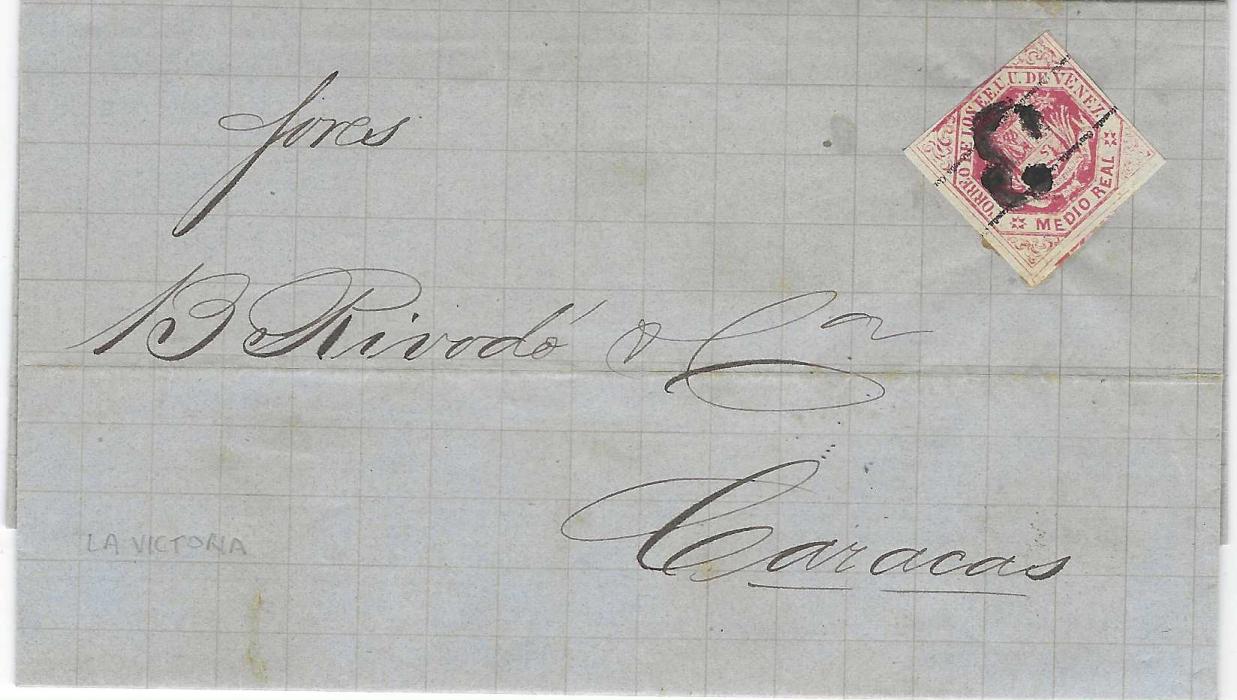 Sores
B Rivodó & Ca
Caracas
LA VICTORIA
CORREO DE LOS EE. U U. DE VENEZ
MEDIO REAL
3